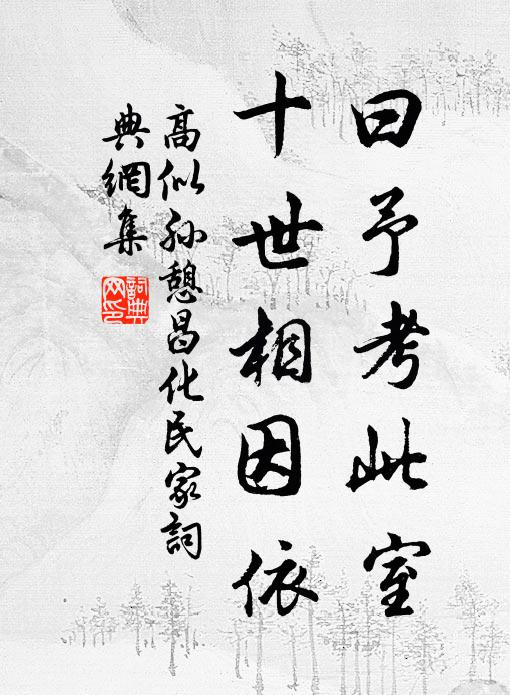 曰予考此室
十世相因依
高似孙憩昌化民家詞
典網集
詞典
网印